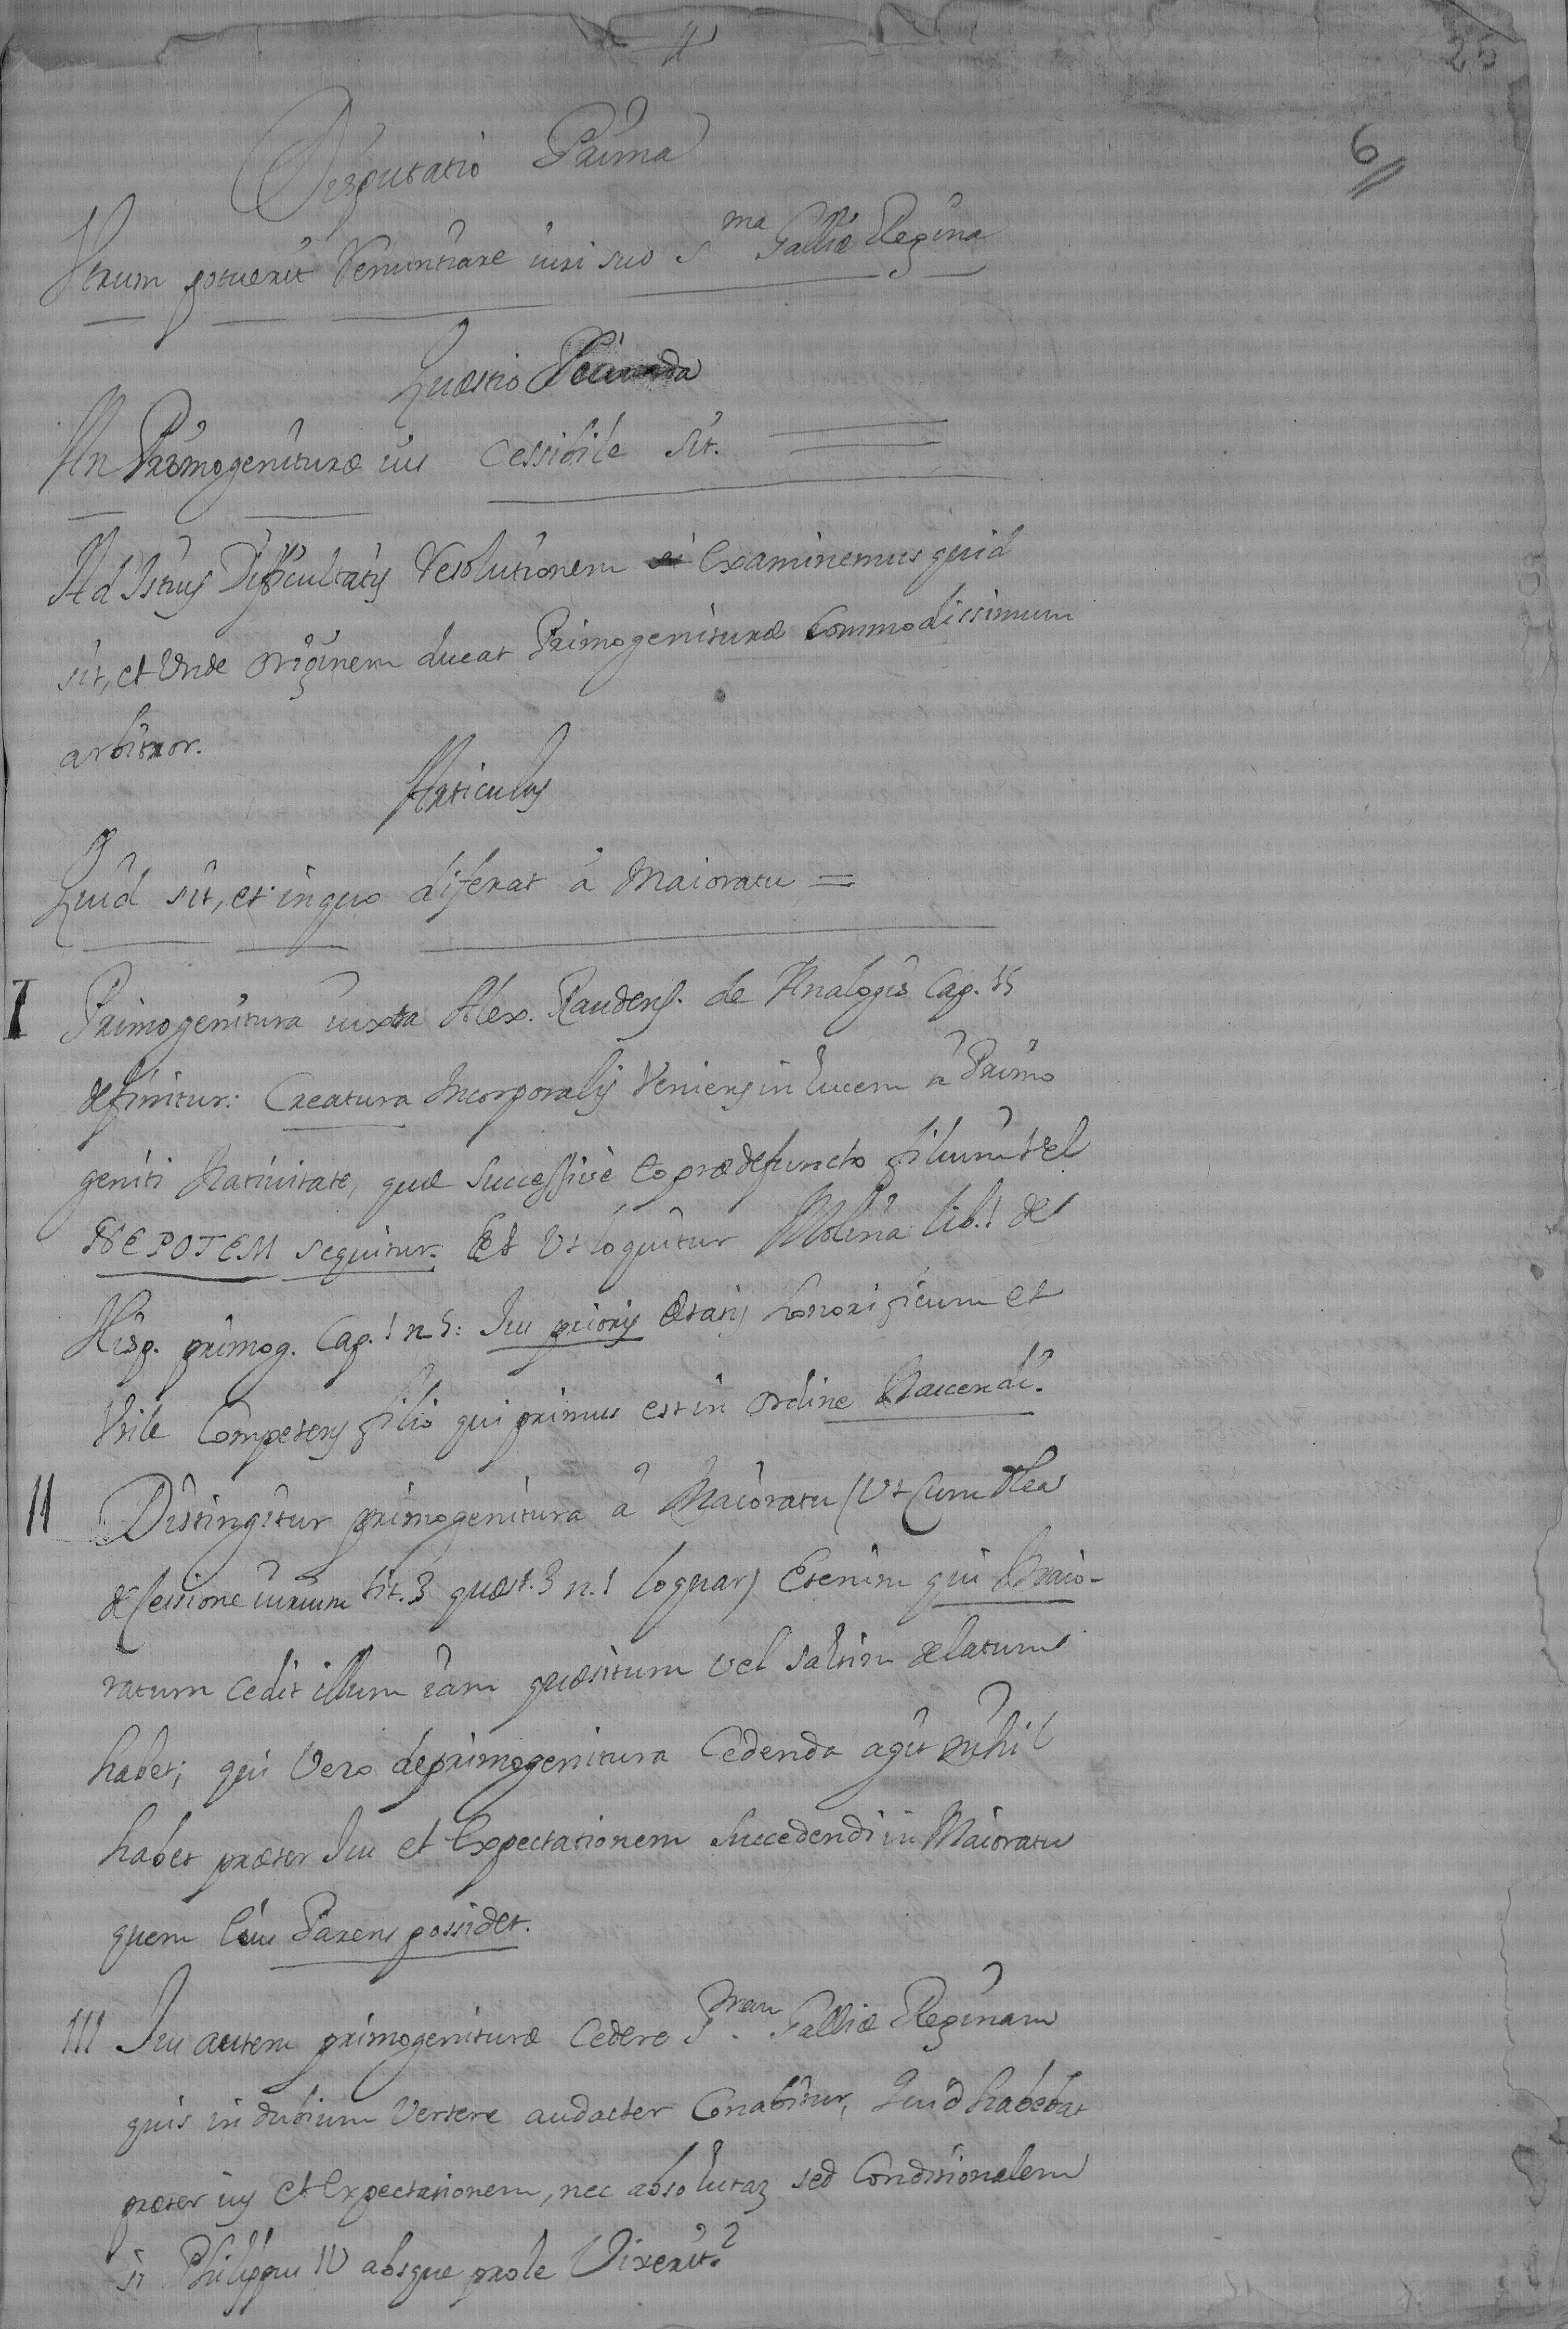 25
6
Disputatio Prima
Vtrum potuerit Renuntiare iuri suo S.ma Galliæ Regina
Quæstio Secunda
An Primogenituræ ius cessibile sit.
Ad Istius Difficultatis Resolutionem Examinemus quid
sit, et Unde originem ducat Primogenituræ Commodissimum
arbitror.
Articulus
Quid sit, et inquo diferat à Maioratu =
I Primogenitura iuxta Alex. Raudens. de Analogis Cap. 15
definitur: Creatura Incorporalis Veniens in lucem à Primo
geniti Natiuitate, quæ Successivè Eo prædefuncto filium vel
NEPOTEM sequitur. Et Ut loquitur Molina lib. 1 de
Hisp. primog. Cap. 1 n 5: Ius prioris Ætatis honorificum et
Vtile Competens filio qui primus est in Ordine Nascendi.
II Distingitur primogenitura à Maioratu (Ut Cum Olea
de Cessione iurium tit. 3 quæst. 3 n. 1 loquar) Etenim qui Maio-
ratum Cedit illum iam quæsitum vel saltim delatum
habet; qui Vero deprimogenitura Cedenda agit nihil
habet præter Ius et Expectationem Succedendi in Maioratu
quem Eius Parens possidet.
III Ius autem primogenituræ Cedere S.mam Galliæ Reginam
quis in dubium Vertere audacter Conabitur, Quid habebat
præter ius et Expectationem, nec absolutaz sed Conditionalem
si Philippus IV absque prole Vixerit?